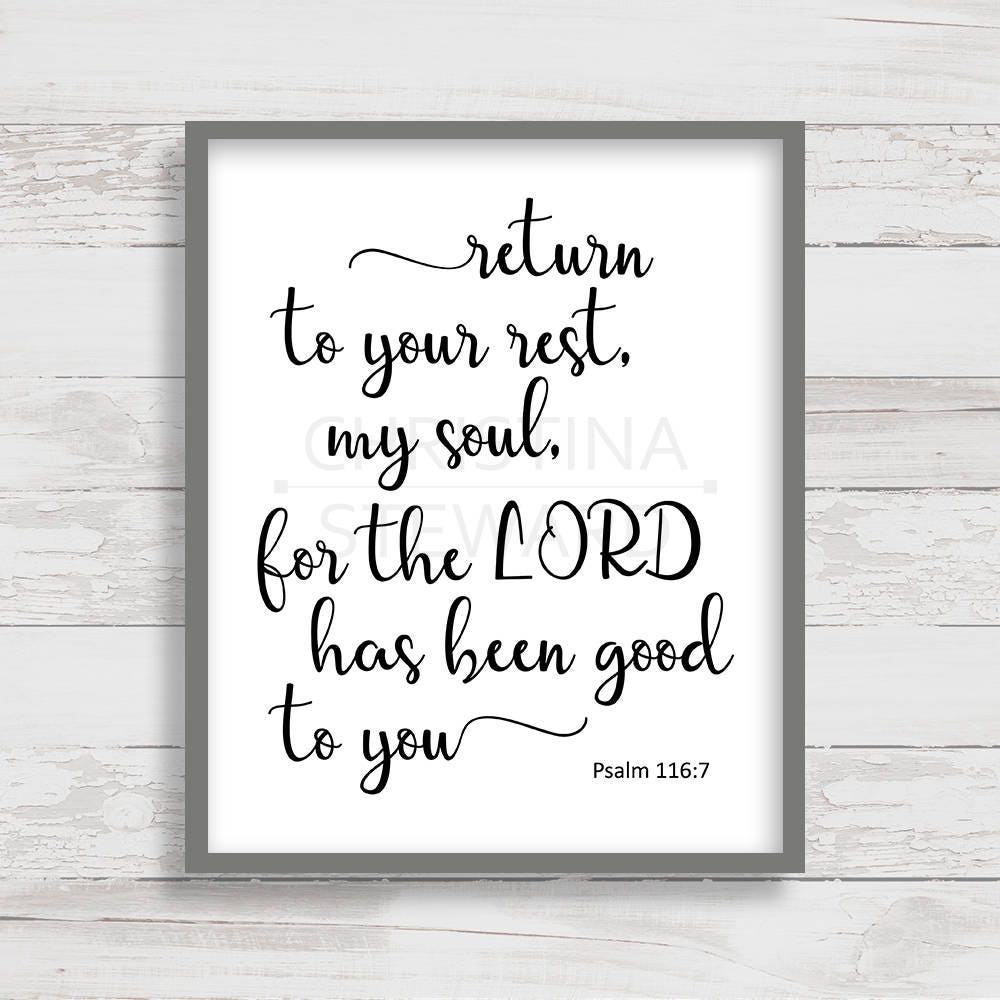 return
to your rest,
my soul,
CHRISTINA
STEWARD
for the LORD
has been good
to you
Psalm 116:7